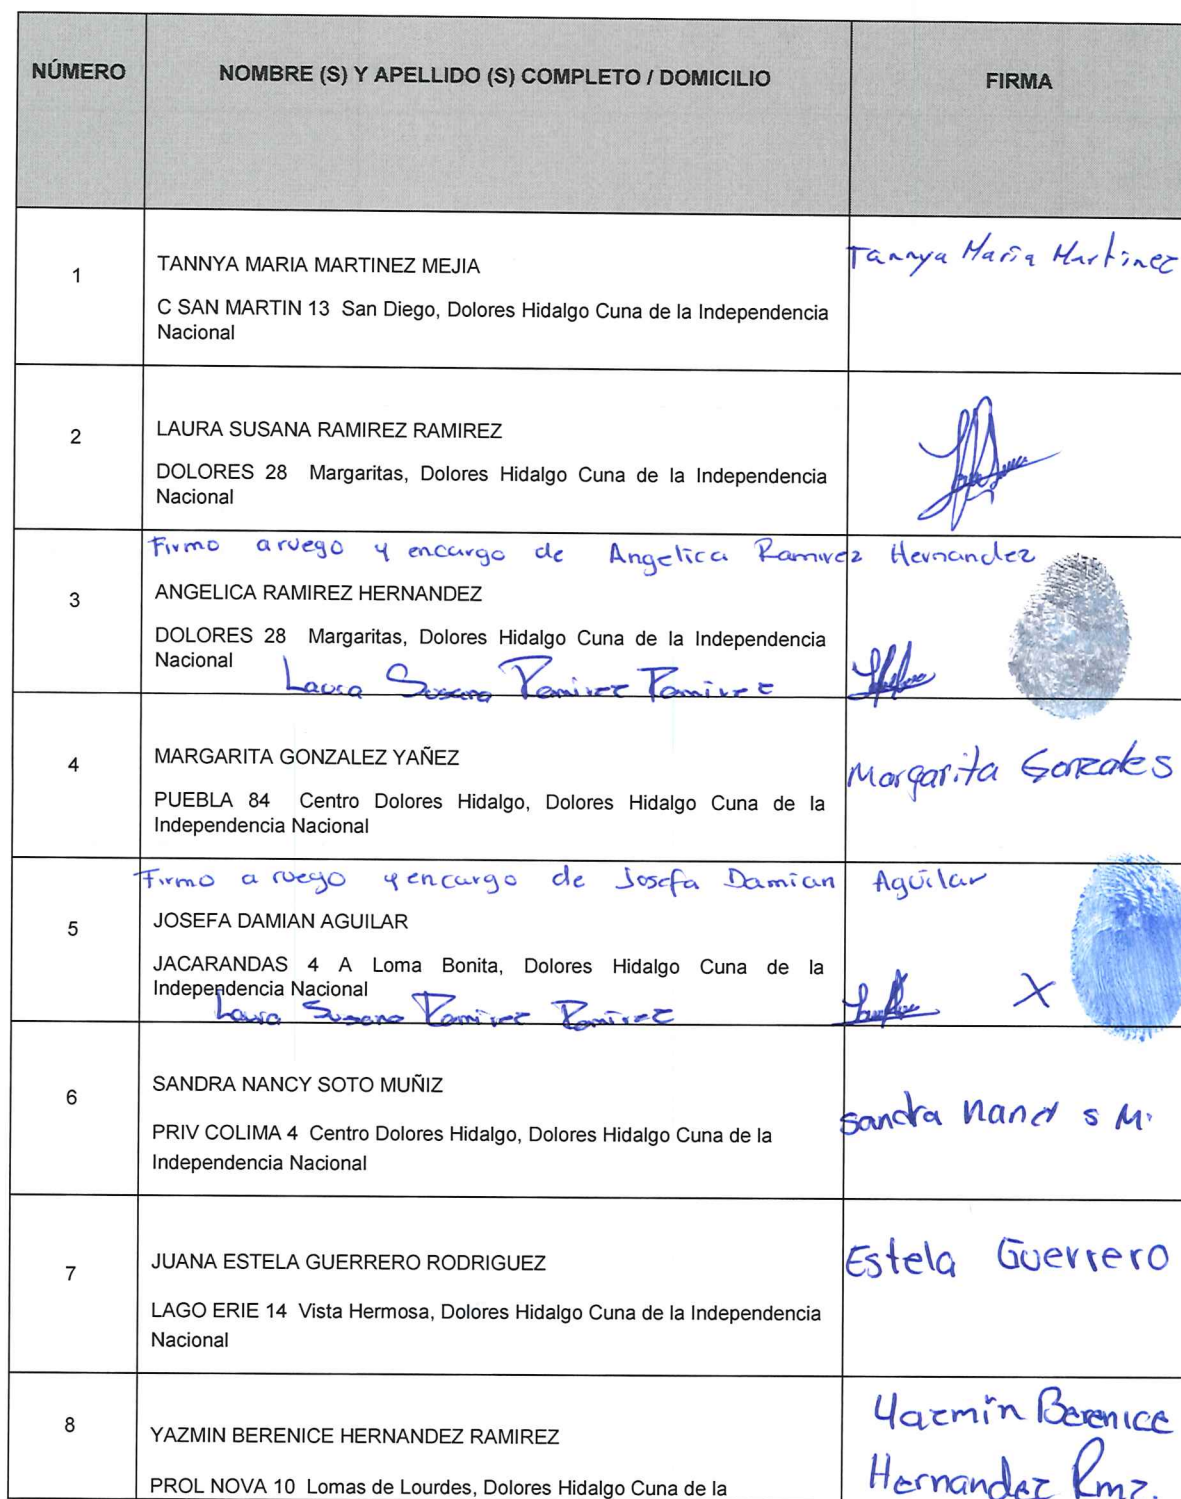 NÚMERO
NOMBRE (S) Y APELLIDO (S) COMPLETO / DOMICILIO
FIRMA
1
TANNYA MARIA MARTINEZ MEJIA
C SAN MARTIN 13 San Diego, Dolores Hidalgo Cuna de la Independencia
Nacional
Tannya María Martinez
2
LAURA SUSANA RAMIREZ RAMIREZ
DOLORES 28 Margaritas, Dolores Hidalgo Cuna de la Independencia
Nacional
Firmo aruego y encargo de Angelica Ramirez Hernandez
3
ANGELICA RAMIREZ HERNANDEZ
DOLORES 28 Margaritas, Dolores Hidalgo Cuna de la Independencia
Nacional
Laura Susana Ramirez Ramirez
4
MARGARITA GONZALEZ YAÑEZ
PUEBLA 84 Centro Dolores Hidalgo, Dolores Hidalgo Cuna de la
Independencia Nacional
Margarita Gonzales
Firmo a ruego y encargo de Josefa Damian Aguilar
5
JOSEFA DAMIAN AGUILAR
JACARANDAS 4 A Loma Bonita, Dolores Hidalgo Cuna de la
Independencia Nacional
Laura Susana Ramirez Ramirez
X
6
SANDRA NANCY SOTO MUÑIZ
PRIV COLIMA 4 Centro Dolores Hidalgo, Dolores Hidalgo Cuna de la
Independencia Nacional
Sandra s M.
7
JUANA ESTELA GUERRERO RODRIGUEZ
LAGO ERIE 14 Vista Hermosa, Dolores Hidalgo Cuna de la Independencia
Nacional
Estela Guerrero
8
YAZMIN BERENICE HERNANDEZ RAMIREZ
PROL NOVA 10 Lomas de Lourdes, Dolores Hidalgo Cuna de la
Yazmín Berenice
Hernandez Rmz.